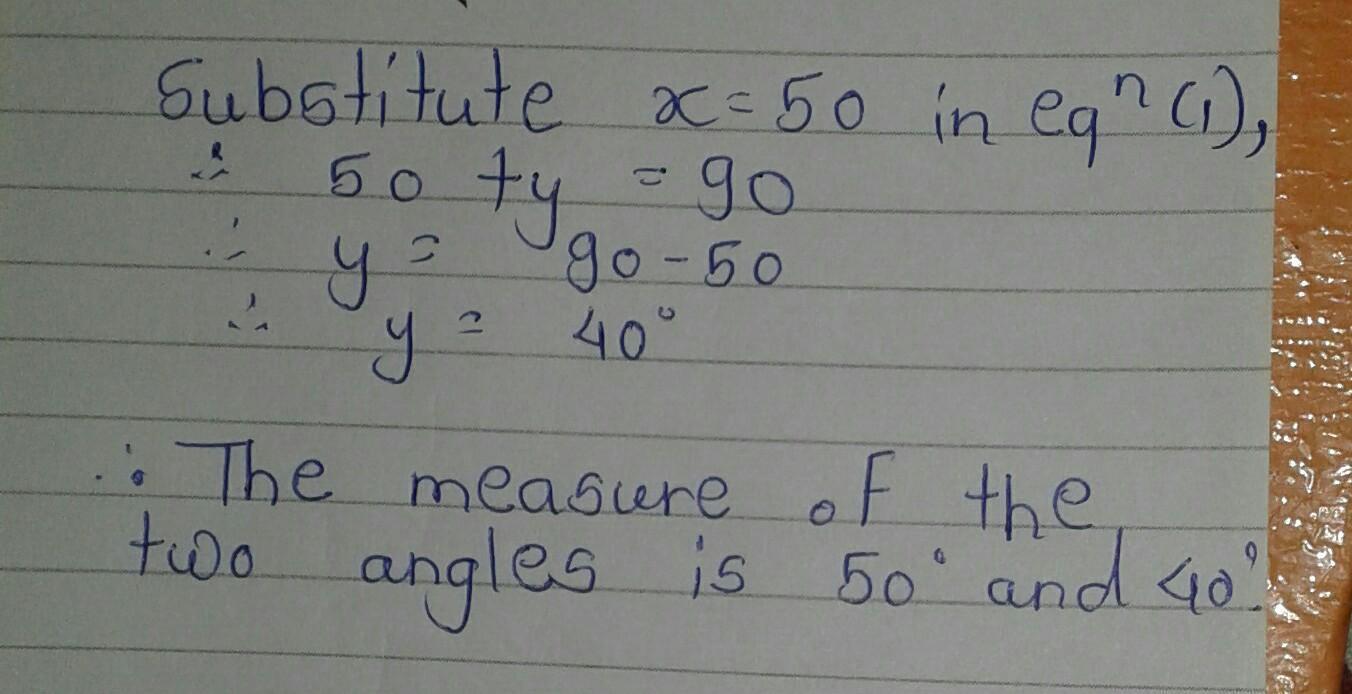 Substitute x=50 in eqⁿ (1),
∴ 50 +y = 90
∴ y = 90-50
∴ y = 40°
∴ The measure of the
two angles is 50° and 40°.